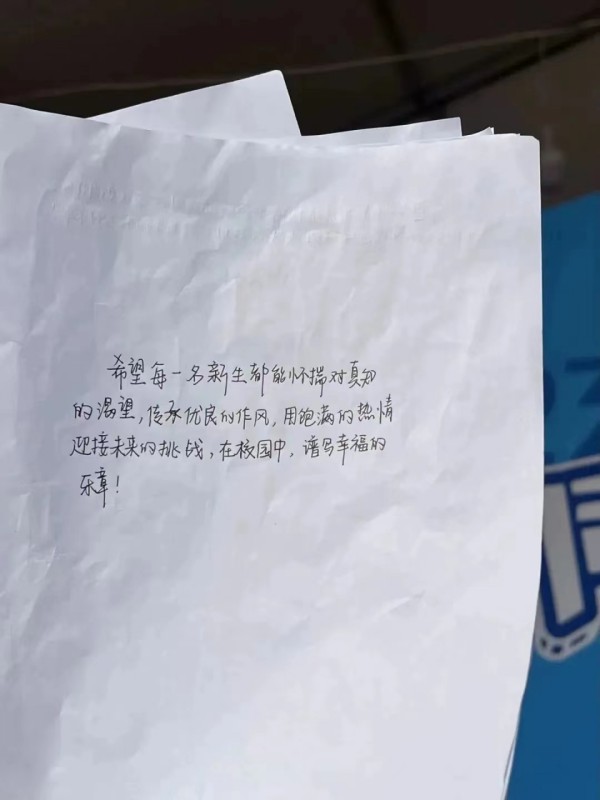 希望每一名新生都能怀揣对真知
的渴望,传承优良的作风,用饱满的热情
迎接未来的挑战,在校园中,谱写幸福的
乐章!